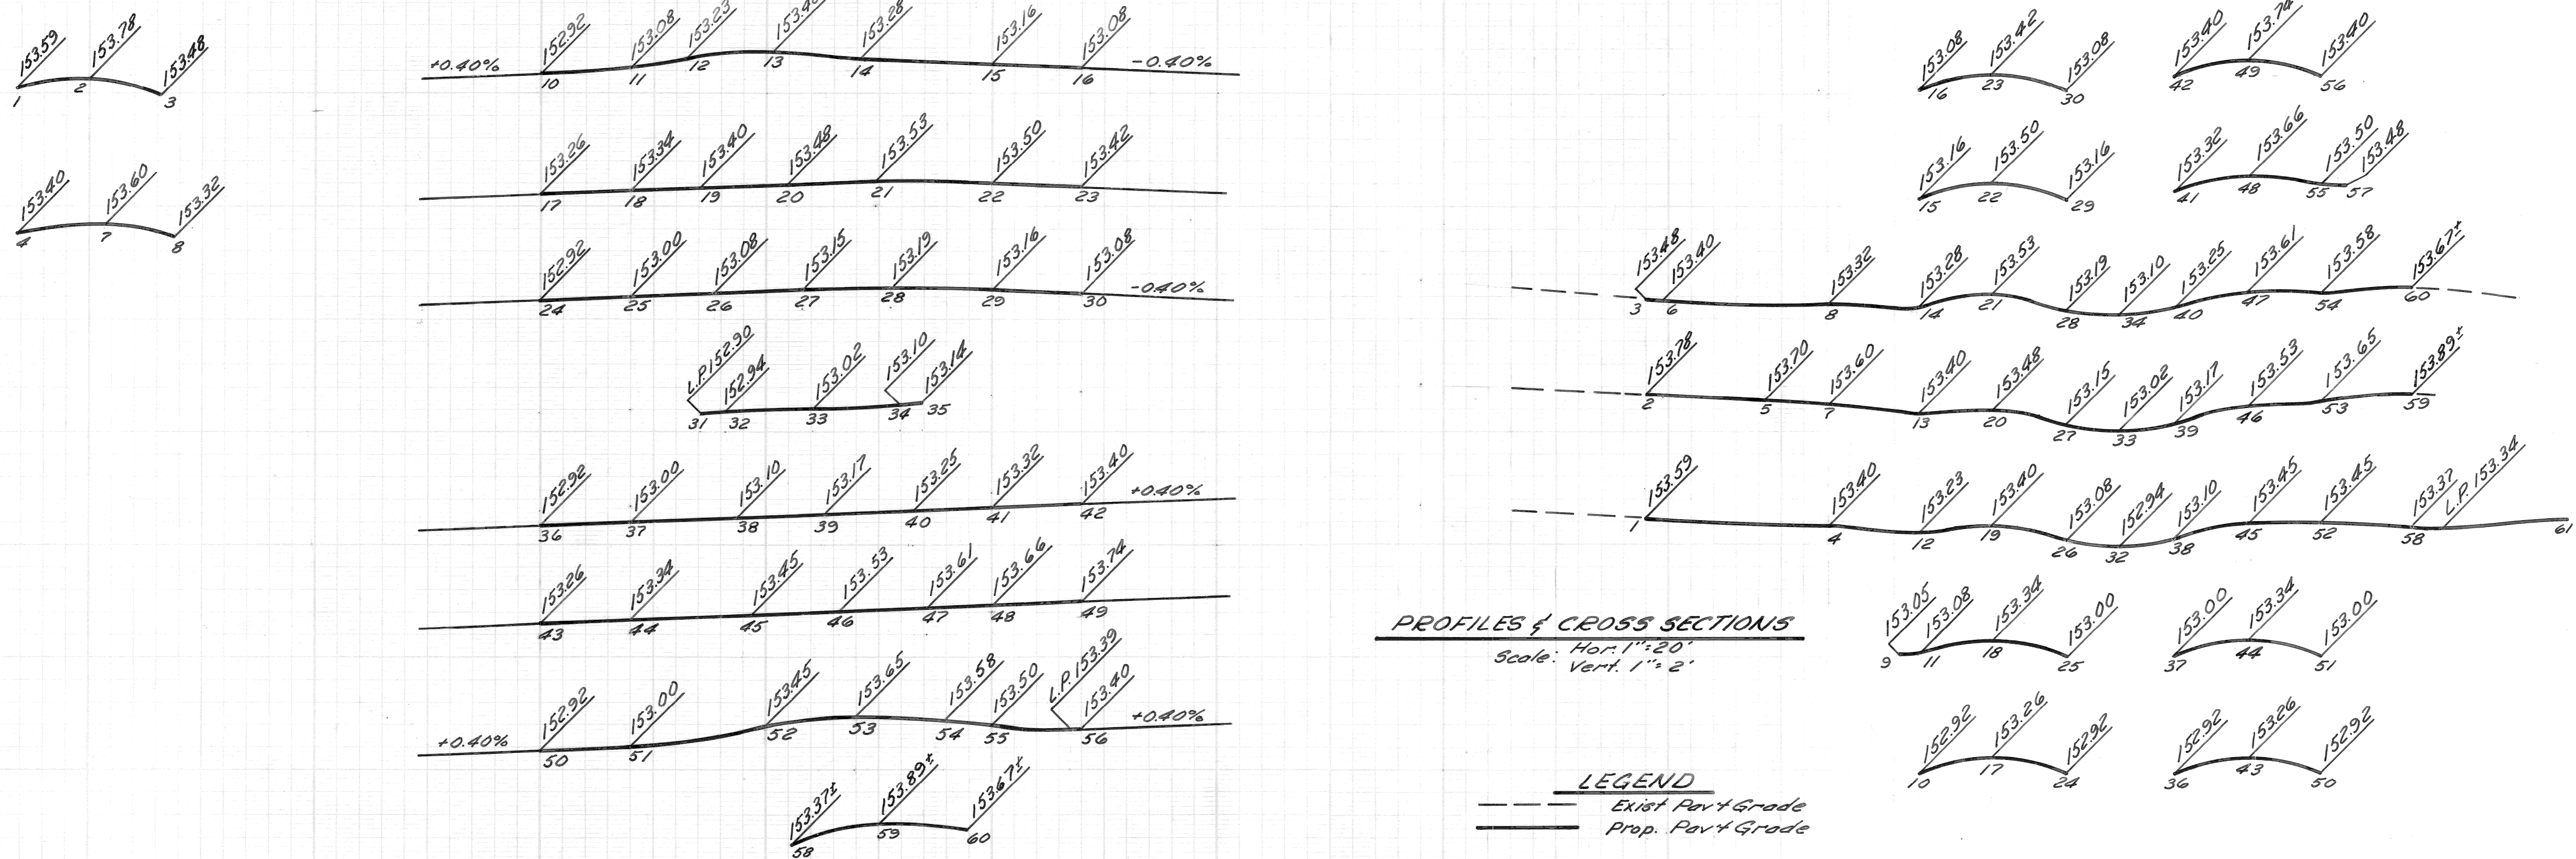 153.59 153.78 153.48
1 2 3
153.40 153.60 153.32
4 7 8
+0.40% 152.92 153.08 153.23 153.28 153.16 153.08 -0.40%
10 11 12 13 14 15 16
153.26 153.34 153.40 153.48 153.53 153.50 153.42
17 18 19 20 21 22 23
152.92 153.00 153.08 153.15 153.19 153.16 153.08 -0.40%
24 25 26 27 28 29 30
L.P. 152.90 152.94 153.02 153.10 153.14
31 32 33 34 35
152.92 153.00 153.10 153.17 153.25 153.32 153.40 +0.40%
36 37 38 39 40 41 42
153.26 153.34 153.45 153.53 153.61 153.66 153.74
43 44 45 46 47 48 49
+0.40% 152.92 153.00 153.45 153.65 153.58 153.50 L.P. 153.39 153.40 +0.40%
50 51 52 53 54 55 56
153.37± 153.89± 153.67±
58 59 60
153.08 153.42 153.08
16 23 30
153.40 153.74 153.40
42 49 56
153.16 153.50 153.16
15 22 29
153.32 153.66 153.50 153.48
41 48 55 57
153.48 153.40 153.32 153.28 153.53 153.19 153.10 153.25 153.61 153.58 153.67±
3 6 8 14 21 28 34 40 47 54 60
153.78 153.70 153.60 153.40 153.48 153.15 153.02 153.17 153.53 153.65 153.89±
2 5 7 13 20 27 33 39 46 53 59
153.59 153.40 153.23 153.40 153.08 152.94 153.10 153.45 153.45 153.37 L.P. 153.34
1 4 12 19 26 32 38 45 52 58 61
153.05 153.08 153.34 153.00
9 11 18 25
153.00 153.34 153.00
37 44 51
152.92 153.26 152.92
10 17 24
152.92 153.26 152.92
36 43 50
PROFILES & CROSS SECTIONS
Scale: Hor. 1"=20'
Vert. 1"=2'
LEGEND
Exist Pav't Grade
Prop. Pav't Grade